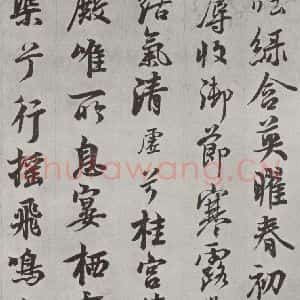 吐綠含英曜春初
蓐收御節寒露
結氣清虛兮桂宮
殿唯所息宴栖
渠兮行搖飛鳴
shufawang.cn